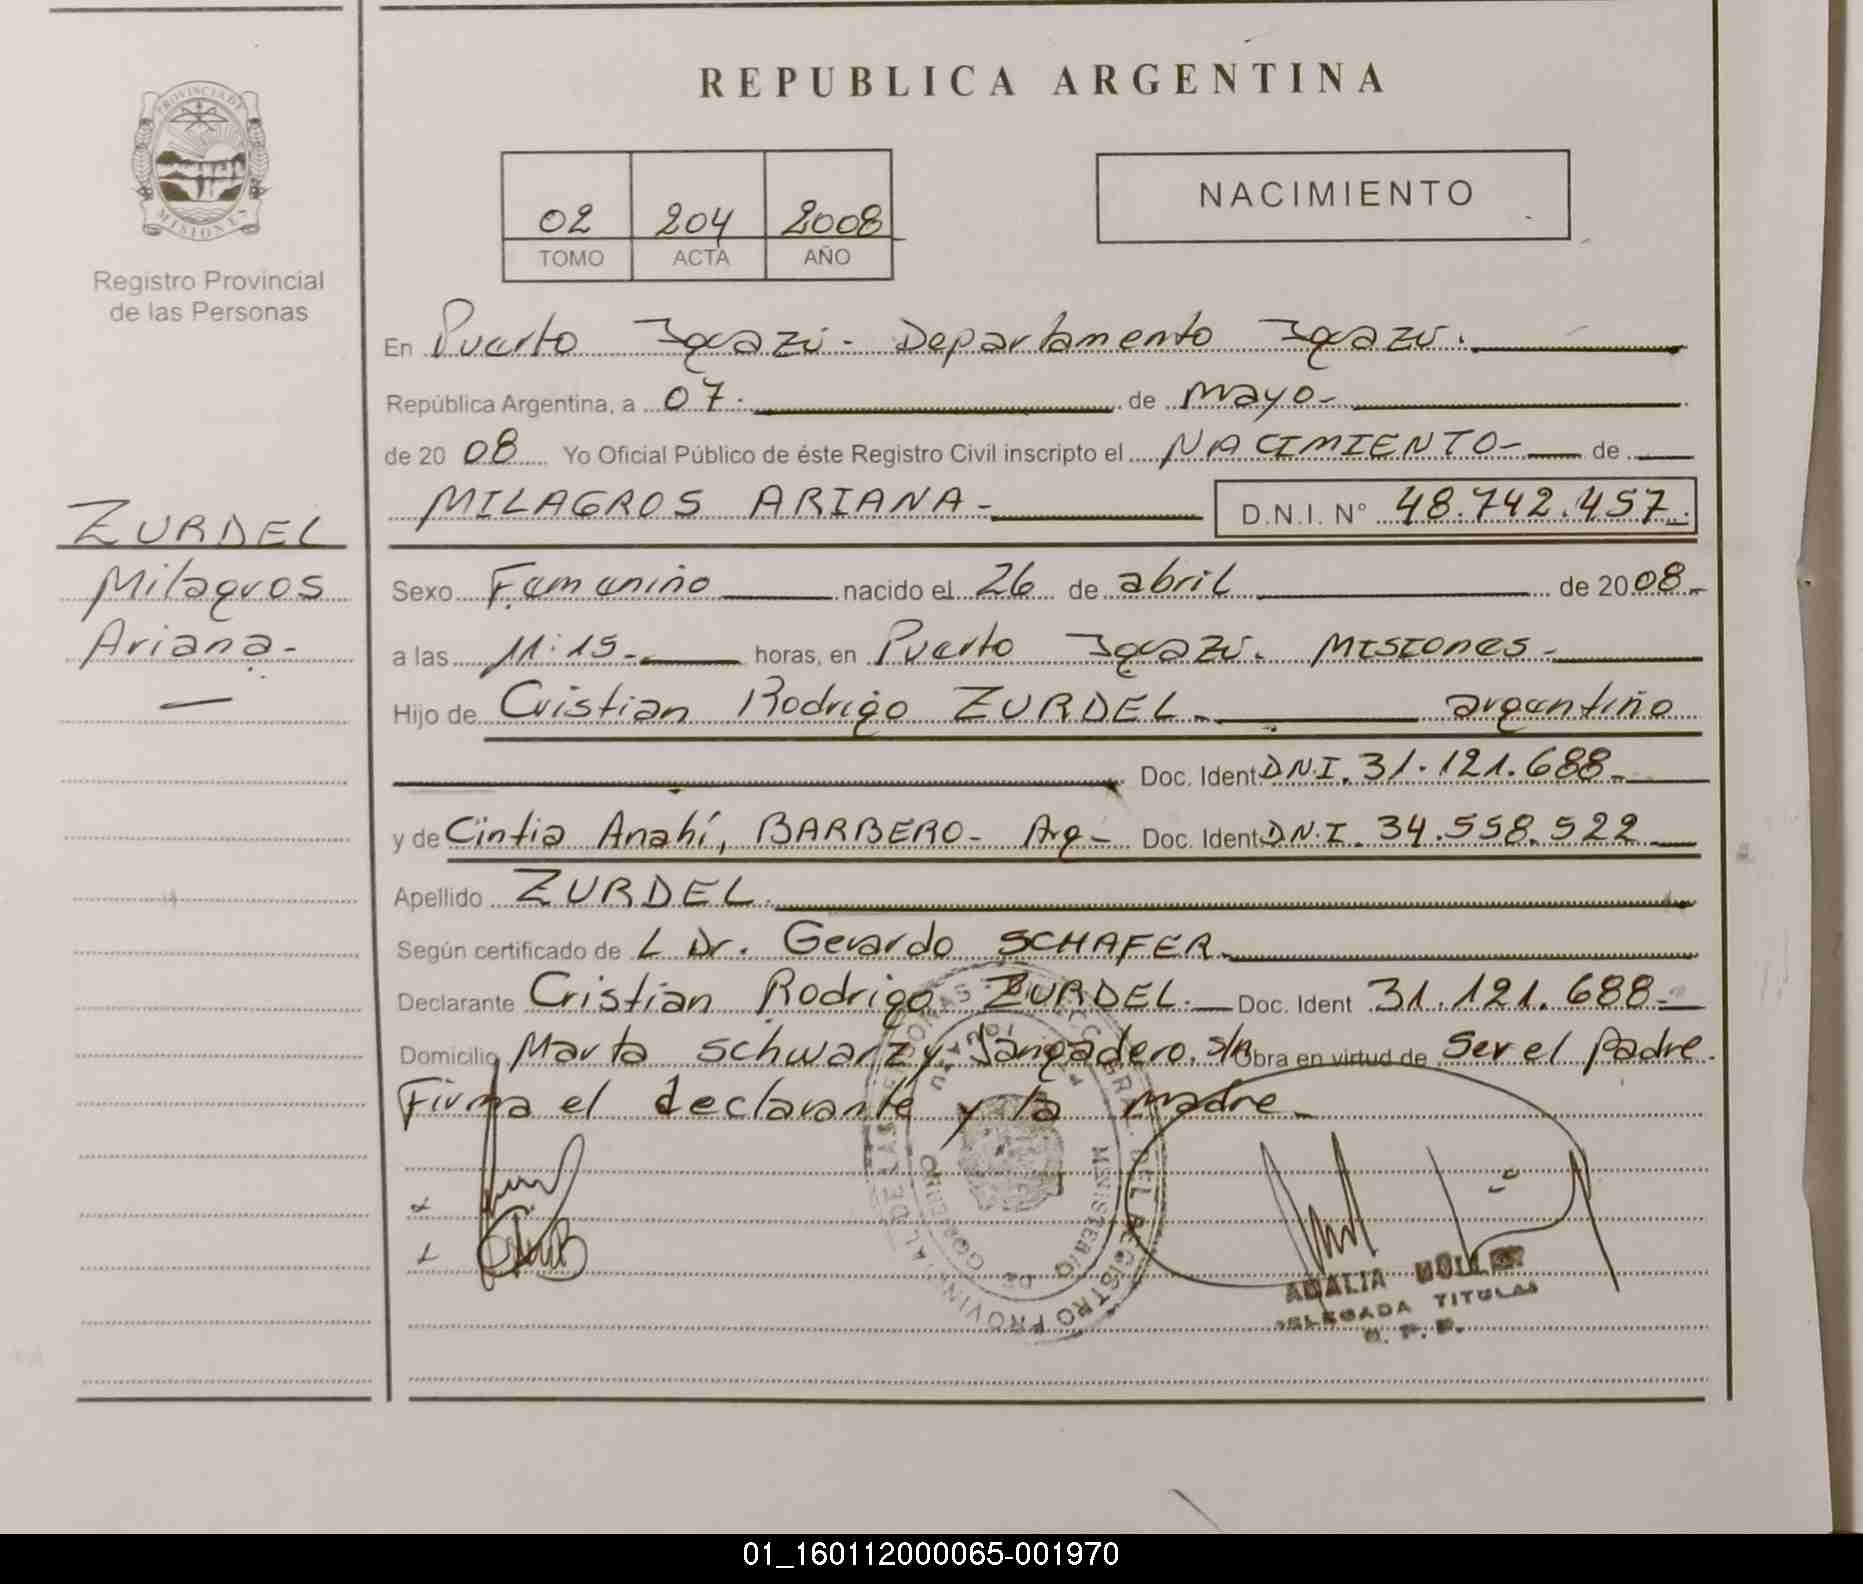 REPUBLICA ARGENTINA
PROVINCIA DE
MISIONES
Registro Provincial
de las Personas
02 204 2008
TOMO ACTA AÑO
NACIMIENTO
En Puerto Iguazú - Departamento Iguazú.
República Argentina, a 07. de Mayo-
de 2008 Yo Oficial Público de éste Registro Civil inscripto el NACIMIENTO- de
MILAGROS ARIANA- D.N.I. N° 48.742.457.
ZURDEL
Milagros
Ariana-
Sexo Femenino nacido el 26 de abril de 2008-
a las 11:15- horas, en Puerto Iguazú. Misiones-
Hijo de Cristian Rodrigo ZURDEL- argentino
Doc. Ident. D.N.I. 31.121.688-
y de Cintia Anahí, BARBERO- Arg- Doc. Ident. D.N.I. 34.558.522-
Apellido ZURDEL.
Según certificado de L Dr. Gerardo SCHAFER-
Declarante Cristian Rodrigo ZURDEL.- Doc. Ident 31.121.688-
Domicilio Marta Schwarz y Jangadero. s/n Obra en virtud de Ser el padre.
Firma el declarante y la madre-
REGISTRO PROVINCIAL DE LAS PERSONAS
MINISTERIO DE GOBIERNO
ADALIA
DELEGADA TITULAR
R. P. P.
01_160112000065-001970